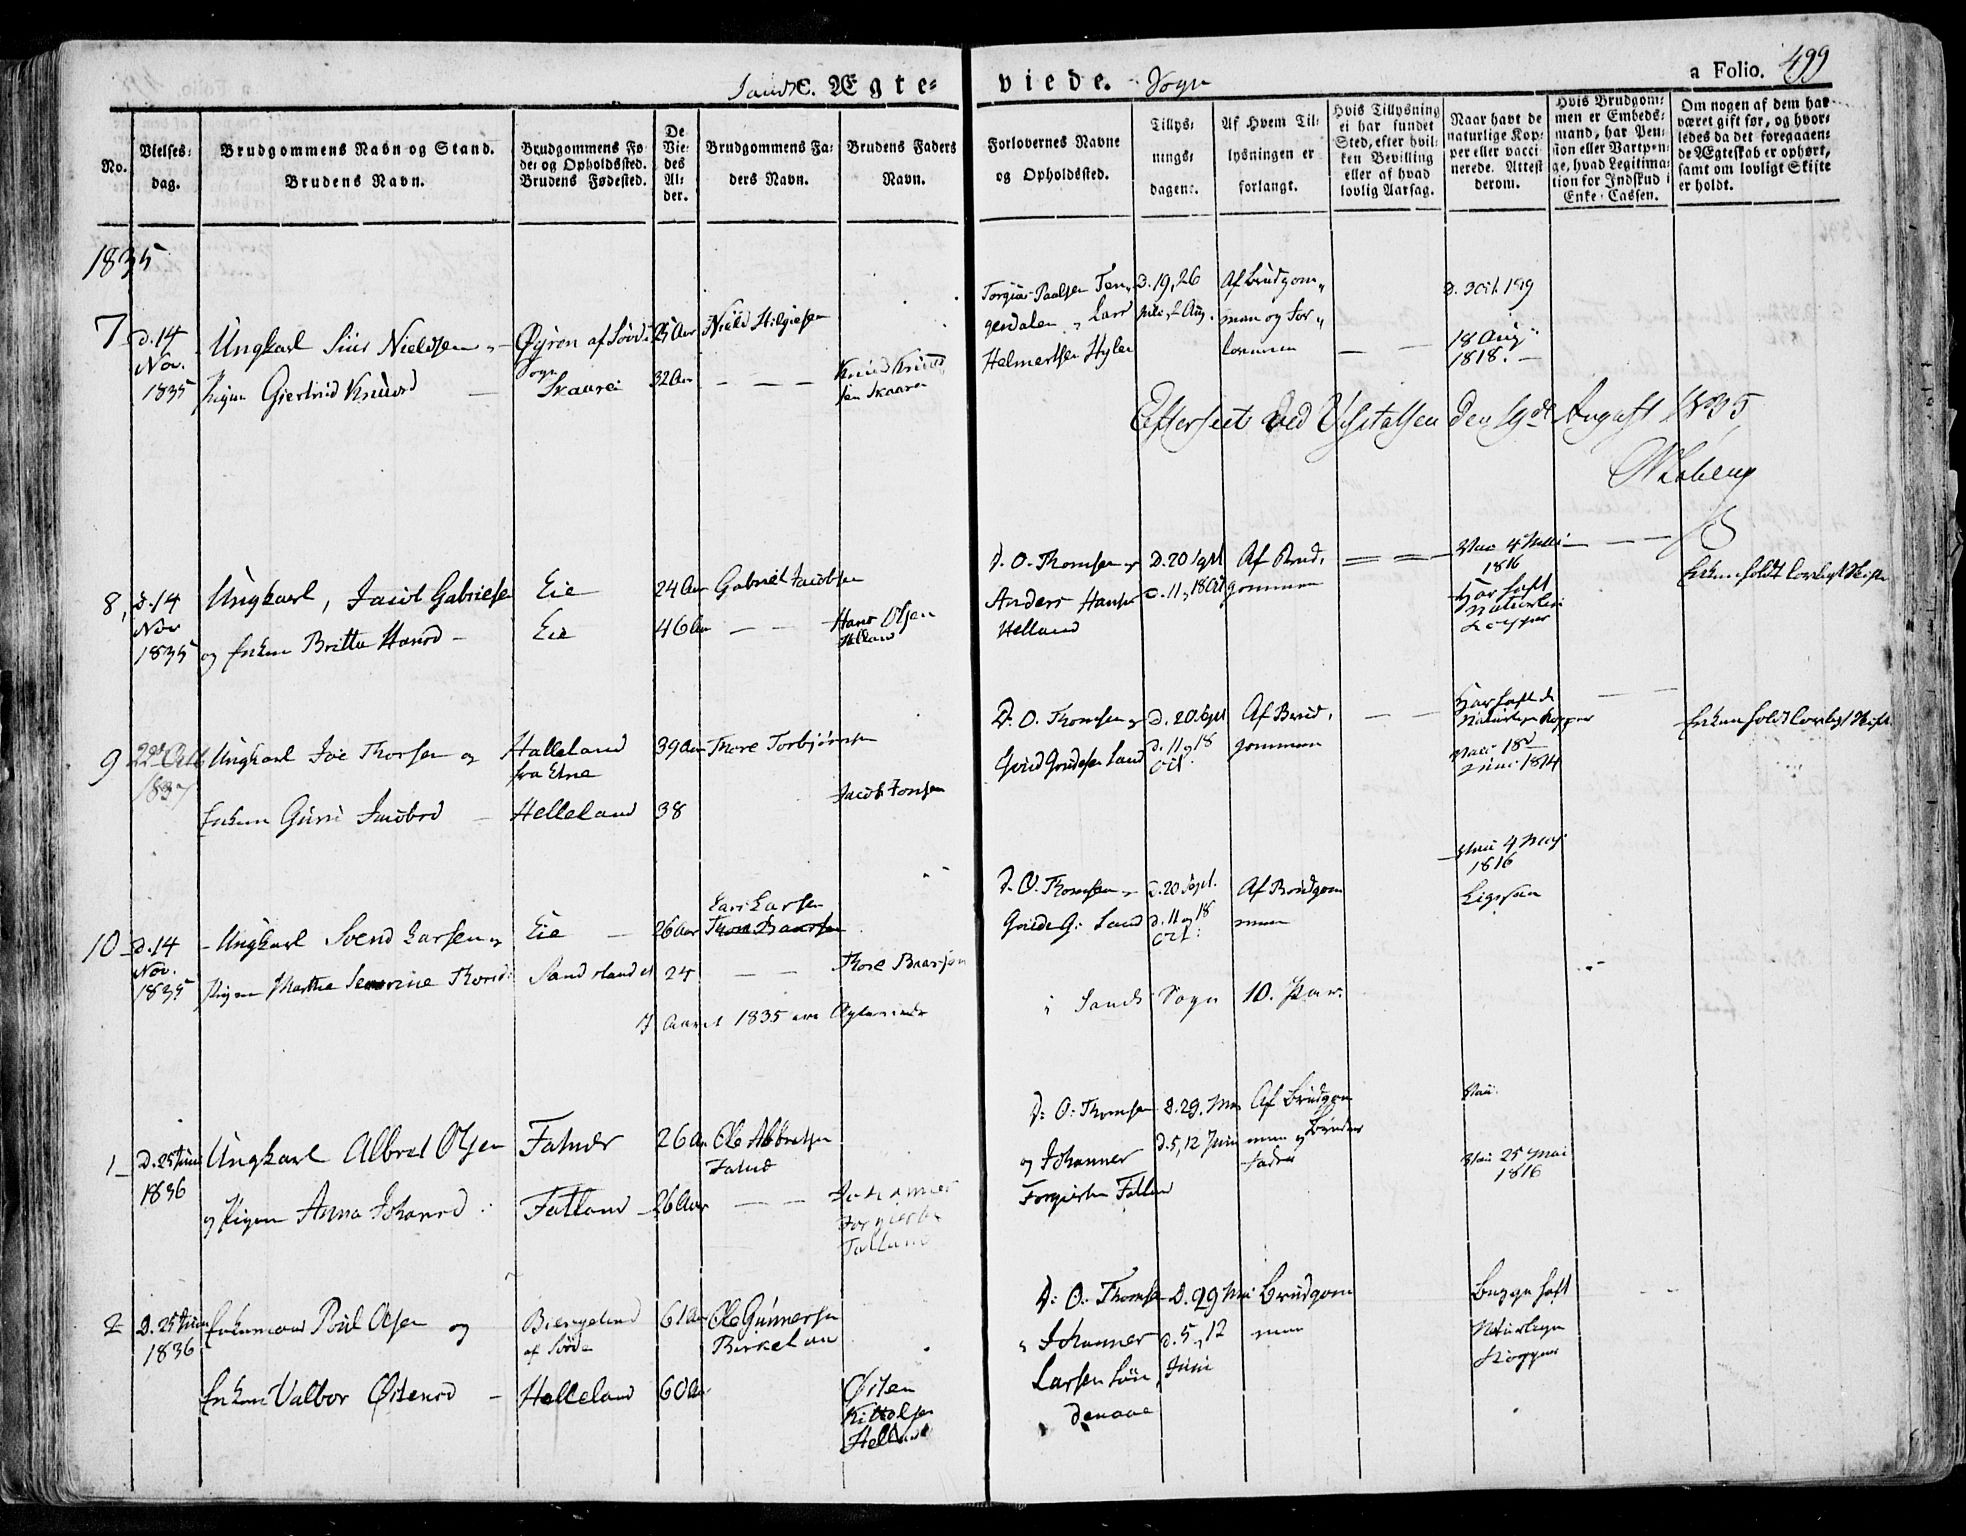 Sands E. Ægte-
viede. Sogn
a Folio. 499
No.
Vielses-
dag.
Brudgommens Navn og Stand.
Brudens Navn.
Brudgommens Fø-
de- og Opholdssted.
Brudens Fødested.
De
Vie-
des
Al-
der.
Brudgommens Fa-
ders Navn.
Brudens Faders
Navn.
Forlovernes Navne
og Opholdssted.
Tillys-
nings-
dagene.
Af Hvem Til-
lysningen er
forlangt.
Hvis Tillysning
ei har fundet
Sted, efter hvil-
ken Bevilling
eller af hvad
lovlig Aarsag.
Naar havt de
naturlige Kop-
per eller vacci-
nerede. Attest
derom.
Hvis Brudgom-
men er Embeds-
mand, har Pen-
sion eller Vartpen-
ge, hvad Legitima-
tion for Indskud i
Enke-Cassen.
Om nogen af dem har
været gift før, og hvor-
ledes da det foregaaen-
de Ægteskab er ophørt,
samt om lovligt Skifte
er holdt.
1835
7 D. 14
Nov.
1835
Ungkarl Siur Nielssen
Pigen Giertrud Knusd
Øyron af Søvde
Sogn
Skaarei
25 Aar
32 Aar
Niels Helgiesen
Knud Knud
sen Skaaren
Torgius Paalsen Ten
gesdalen, Lars
Helmertsen Hylen
D. 19, 26
Juli, 2 Aug.
Af Brudgom
man og For
loveren
D. 3 Oct. 189
18 Aug
1818.
Efterseet ved Visitatsen den 19de August 1835
8, D. 14
Nov
1835
Ungkarl, Jacob Gabrielsen
og Enken Britta Hansd
Eie
Eie
24 Aar
46 Aar
Gabriel Jacobsen
Hans Olsen
Helland
D. O. Thomsen
Anders Hansen
Helland
D. 20 Sept
D. 11, 18 Oct
Af Brud
gommen
Vac 4 Mai
1816
Har haft
Naturlige
Kopper
Enken holdt lovligt Skifte
9 22de Octb
1837
Ungkarl Joe Thorsen og
Enken Guri Jacobsd
Halleland
fra Etne
Helleland
39 Aar
38
Thore Torbjørnsen
Jacob Jonsen
D. O. Thomsen
Gorid Gorudsen Sand
D. 20 Sept
D. 11 og 18
Oct.
Af Brud
gommen
Har haft de
Naturlige Kopper
Vacc 18de
Juni 1814
Enken holdt lovligt Skift
10 D. 14
Nov.
1835
Ungkarl Svend Larsen og
Pigen Marthe Severine Thorsd:
Eie
Sandslandet
26 Aar
24
Lars Larsen
Thore Baarsen
Thore Baarsen
D. O. Thomsen
Goride G: Sand
D. 20 Sept.
D. 11 og 18
Oct:
Af Brudgom
men
Vac 4 May
1816
Ligesaa
I Aaret 1835 ere Ægteviede
i Sands Sogn 10. Par.
1 D. 25 Juni
1836
Ungkarl Albret Olsen
og Pigen Anna Johansd:
Fatnæs
Fatland
26 Aar
26 Aar
Ole Albretsen
Johannes
Torgiersen
Fatland
D: O: Thomsen
og Johannes
Torgiersen Fatland
D. 29. Mai
D. 5, 12 Juni
Af Brudgom
men og Brudens
Fader
Vac:
Vac 25 Mai
1816
2 D. 25 Juni
1836
Enkemand Poul Olsen og
Enken Valbor Østensd
af Søvde
Helleland
61 Aar
60 Aar
Ole Gunnersen
Birkeland
Østen
Kittelsen
Helland
D: O: Thomsen
Johannes
Larsen
D. 29 Mai
D. 5, 12
Juni
Brudgom
men
Begge haft
Naturlige
Kopper